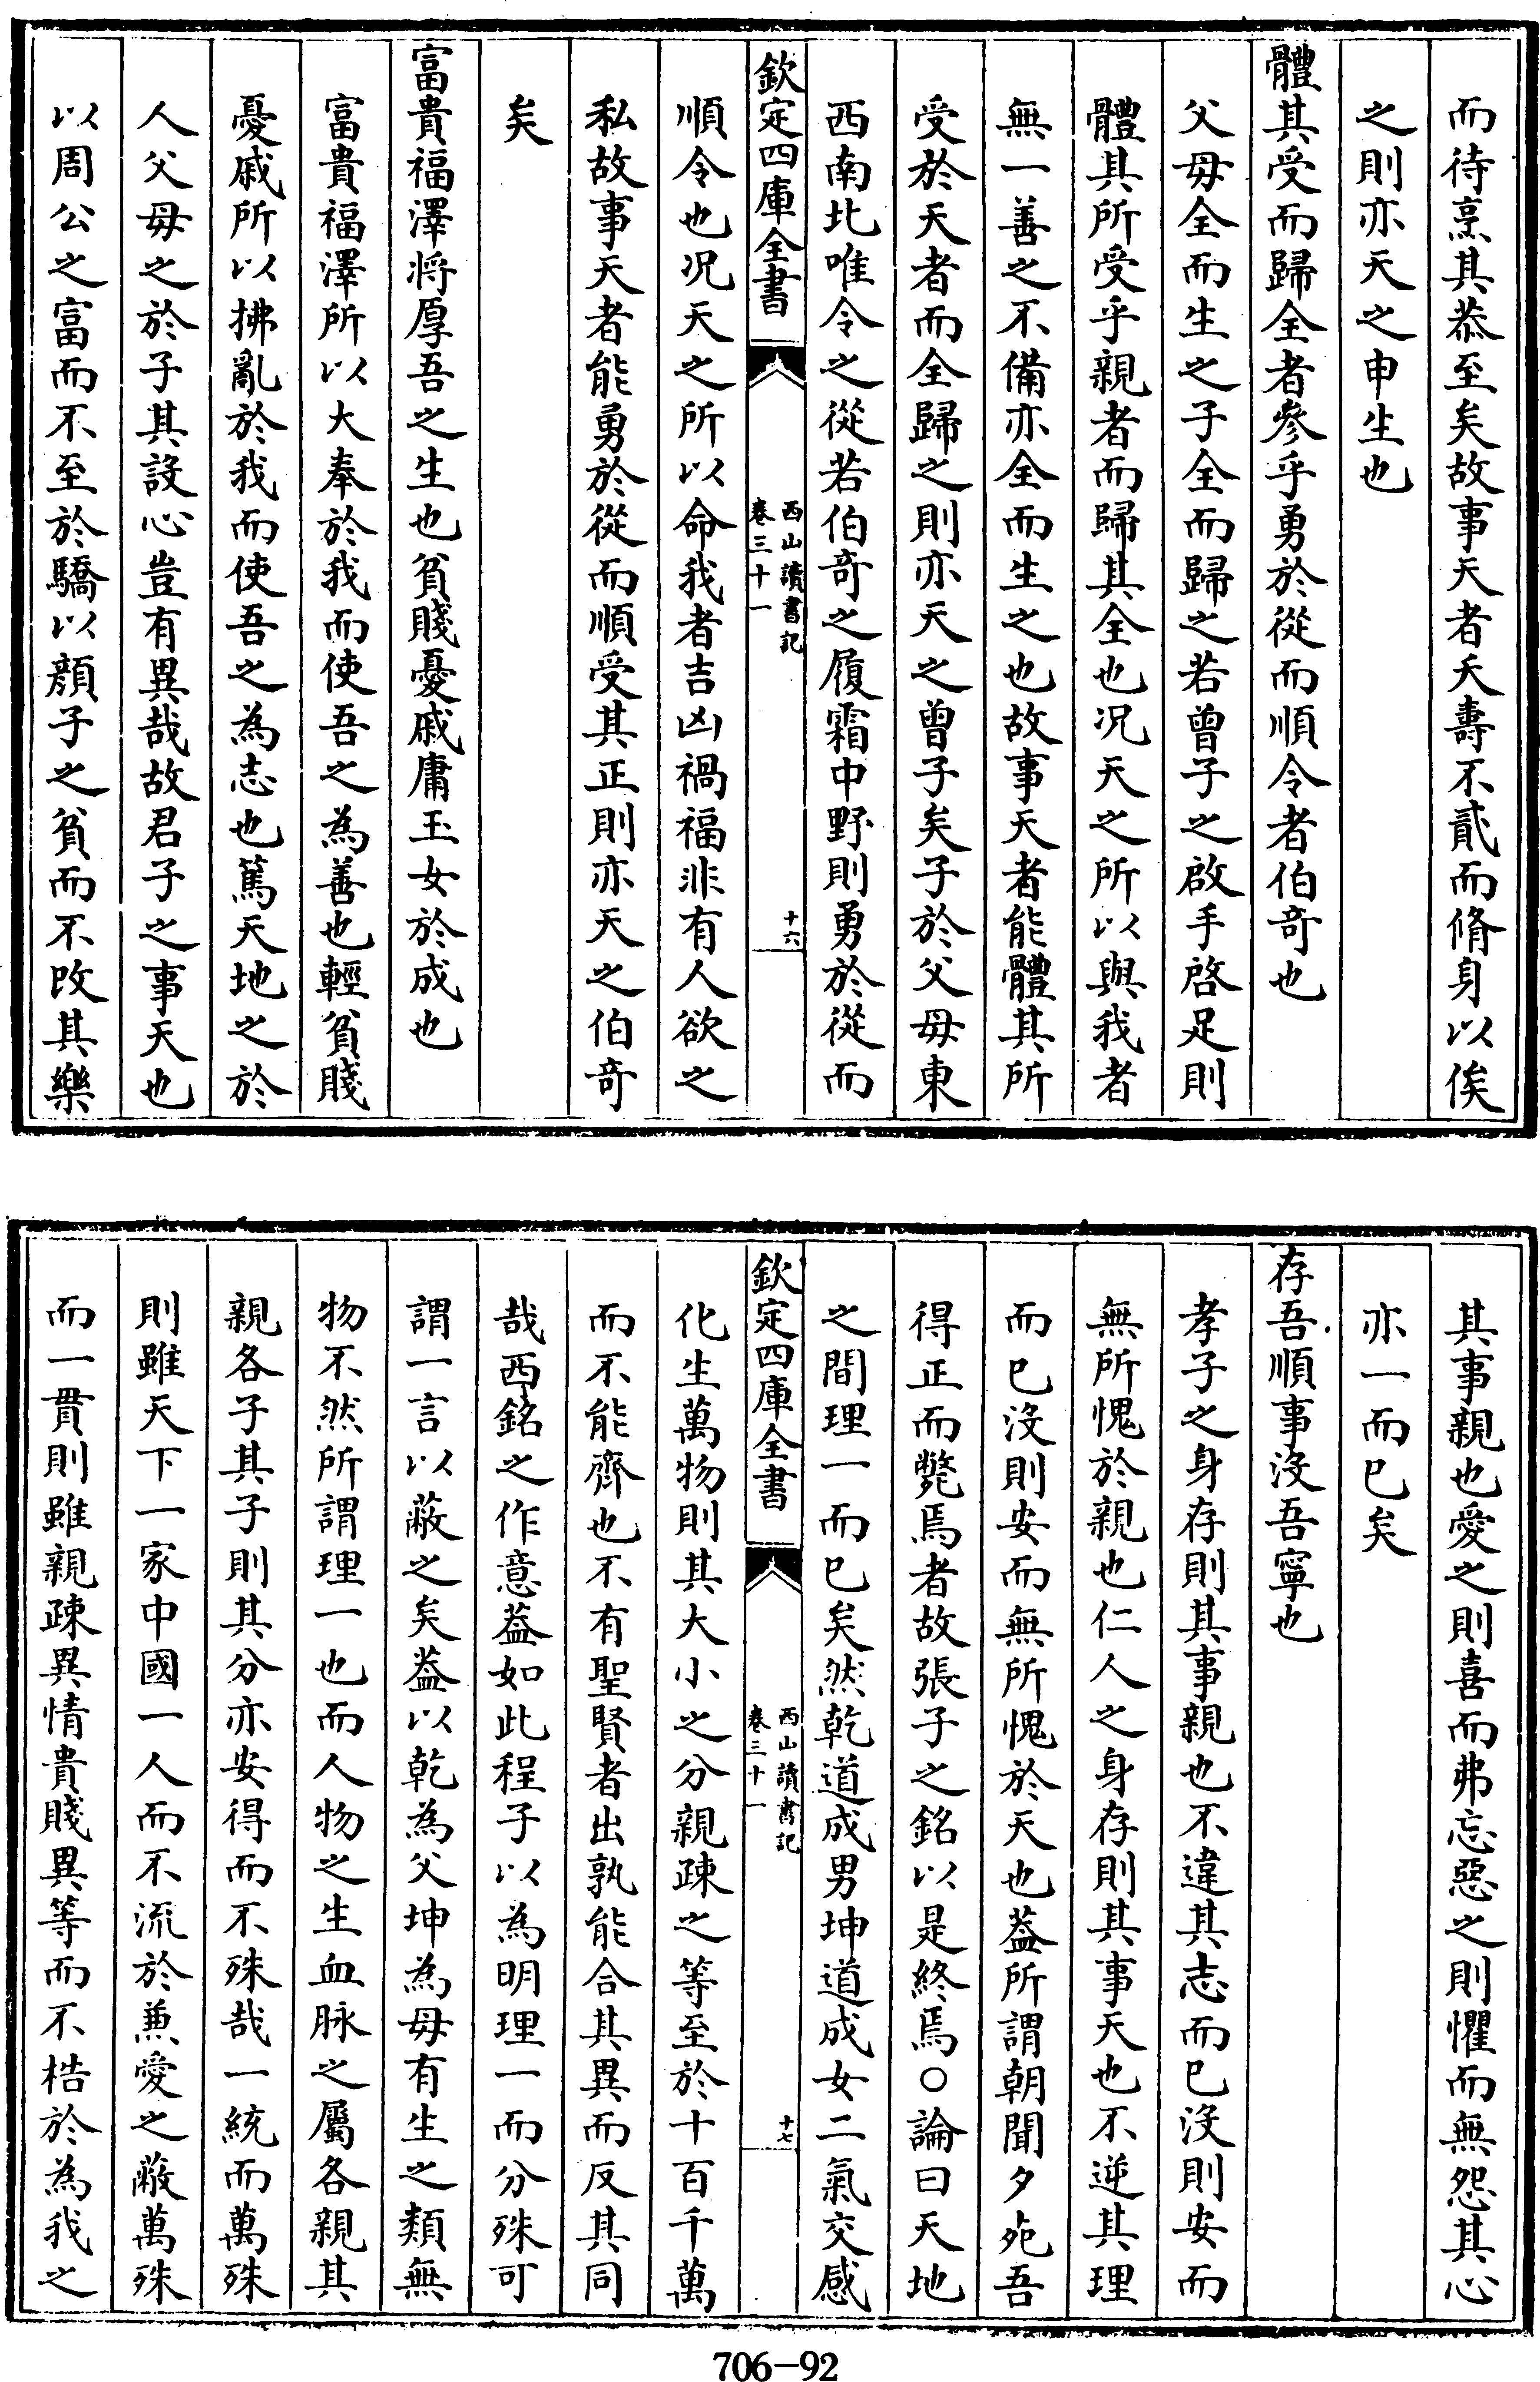 而待烹其恭至矣故事天者夭壽不貳而脩身以俟
之則亦天之申生也
體其受而歸全者參乎勇於從而順令者伯奇也
父母全而生之子全而歸之若曾子之啟手啓足則
體其所受乎親者而歸其全也况天之所以與我者
無一善之不備亦全而生之也故事天者能體其所
受於天者而全歸之則亦天之曾子矣子於父母東
西南北唯令之從若伯奇之履霜中野則勇於從而
欽定四庫全書
西山讀書記
卷三十一
十六
順令也况天之所以命我者吉凶禍福非有人欲之
私故事天者能勇於從而順受其正則亦天之伯奇
矣
富貴福澤將厚吾之生也貧賤憂戚庸玉女於成也
富貴福澤所以大奉於我而使吾之為善也輕貧賤
憂戚所以拂亂於我而使吾之為志也篤天地之於
人父母之於子其設心豈有異哉故君子之事天也
以周公之富而不至於驕以顔子之貧而不改其樂
其事親也愛之則喜而弗忘惡之則懼而無怨其心
亦一而已矣
存吾順事沒吾寧也
孝子之身存則其事親也不違其志而已沒則安而
無所愧於親也仁人之身存則其事天也不逆其理
而已沒則安而無所愧於天也葢所謂朝聞夕死吾
得正而斃焉者故張子之銘以是終焉○論曰天地
之間理一而已矣然乾道成男坤道成女二氣交感
欽定四庫全書
西山讀書記
卷三十一
十七
化生萬物則其大小之分親疎之等至於十百千萬
而不能齊也不有聖賢者出孰能合其異而反其同
哉西銘之作意葢如此程子以為明理一而分殊可
謂一言以蔽之矣葢以乾為父坤為母有生之類無
物不然所謂理一也而人物之生血脉之屬各親其
親各子其子則其分亦安得而不殊哉一統而萬殊
則雖天下一家中國一人而不流於兼愛之蔽萬殊
而一貫則雖親疎異情貴賤異等而不梏於為我之
706-92